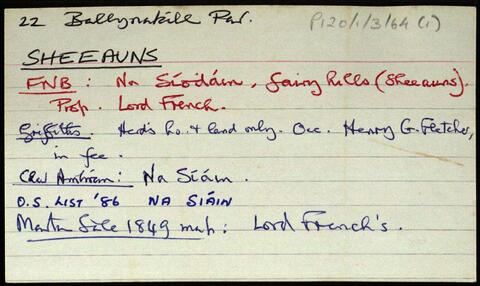 22 Ballynakill Par. P120/1/3/64 (i)
SHEEAUNS
FNB : Na Síodáin, fairy hills (Sheeauns).
Prop. Lord French.
Griffiths. Herd's ho. & land only. Occ. Henry G. Fletcher,
in fee.
Clár Ambróin: Na Síáin.
O.S. LIST '86 NA SIÁIN
Martin Sale 1849 map: Lord French's.